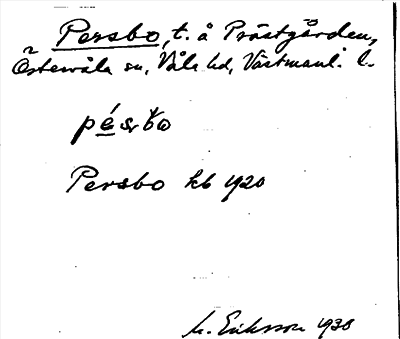 Persbo, t. å Prästgården,
Östervåla sn, Våla hd, Västmanl. l.
Persbo kb 1920
M. Eriksson 1938